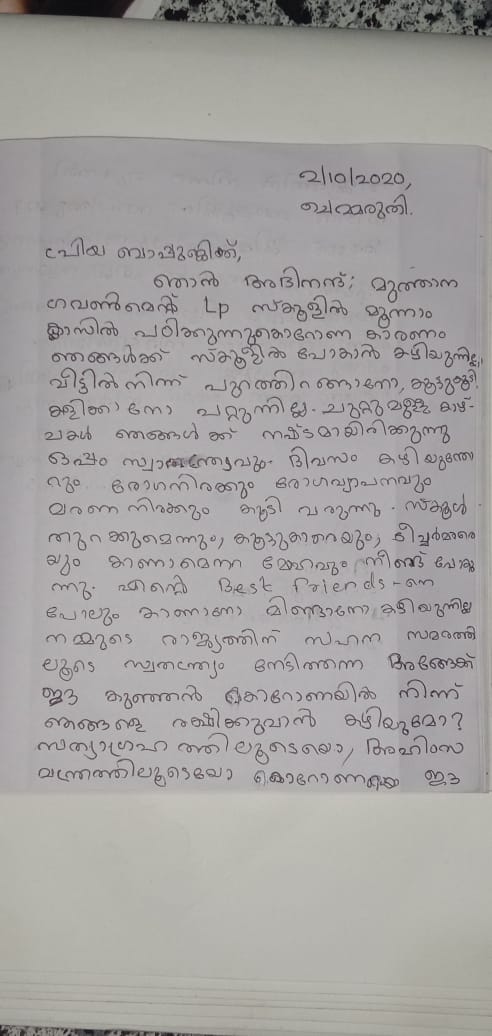 2/10/2020,
ചെമ്മരുതി.
പ്രിയ ബാപ്പുജിക്ക്,
ഞാൻ അഭിനന്ദ്; മുത്താന
ഗവൺമെന്റ് Lp സ്കൂളിൽ മൂന്നാം
ക്ലാസിൽ പഠിക്കുന്നു കൊറോണ കാരണം
ഞങ്ങൾക്ക് സ്കൂളിൽ പോകാൻ കഴിയുന്നില്ല,
വീട്ടിൽ നിന്ന് പുറത്തിറങ്ങാനോ, കൂട്ടുകൂടി
കളിക്കാനോ പറ്റുന്നില്ല. ചുറ്റുമുള്ള കാഴ്-
ചകൾ ഞങ്ങൾക്ക് നഷ്ടമായിരിക്കുന്നു
ഒപ്പം സ്വാതന്ത്ര്യവും. ദിവസം കഴിയുന്തോ
റും രോഗനിരക്കും രോഗവ്യാപനവും
മരണ നിരക്കും കൂടി വരുന്നു. സ്കൂൾ
തുറക്കുമെന്നും, കൂട്ടുകാരെയും, ടീച്ചർമാരെ
യും കാണാമെന്ന മോഹവും നീണ്ട് പോകു
ന്നു. എന്റെ Best friends-നെ
പോലും കാണാനോ മിണ്ടാനോ കഴിയുന്നില്ല
നമ്മുടെ രാജ്യത്തിന് സഹന സമരത്തി
ലൂടെ സ്വതന്ത്ര്യം നേടിത്തന്ന അങ്ങേക്ക്
ഈ കുഞ്ഞൻ കൊറോണയിൽ നിന്ന്
ഞങ്ങളെ രക്ഷിക്കുവാൻ കഴിയുമോ?
സത്യാഗ്രഹത്തിലൂടെയോ, അഹിംസ
മന്ത്രത്തിലൂടെയോ കൊറോണയെ ഈ